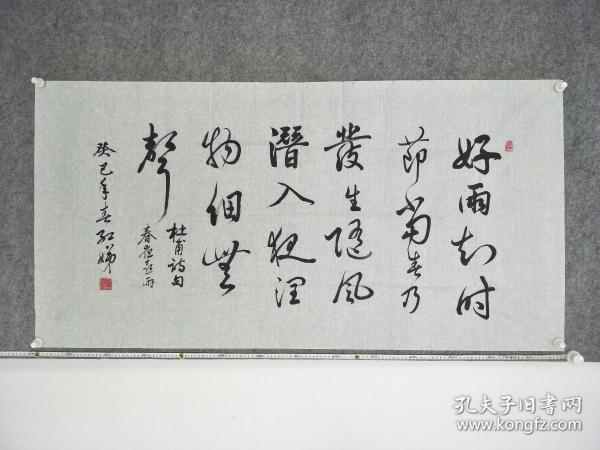 好雨知时
節當春乃
發生隨風
潛入夜润
物細無
聲
杜甫诗句
春夜喜雨
癸巳年春红娣
孔夫子旧书网
www.kongfz.com